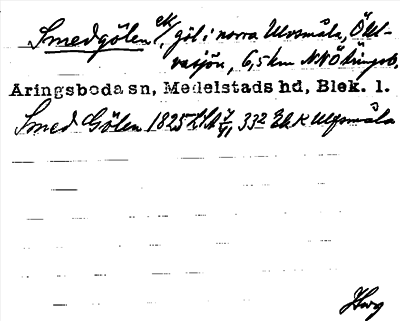 Smedgölen ek/, göl i norra Ulvsmåla, Ökl-
vasjön, 6,5 km NNÖ Öringsb.
Aringsboda sn, Medelstads hd, Blek. l.
Smed Gölen 1825 LSA 332 Ek K Ulfsmåla